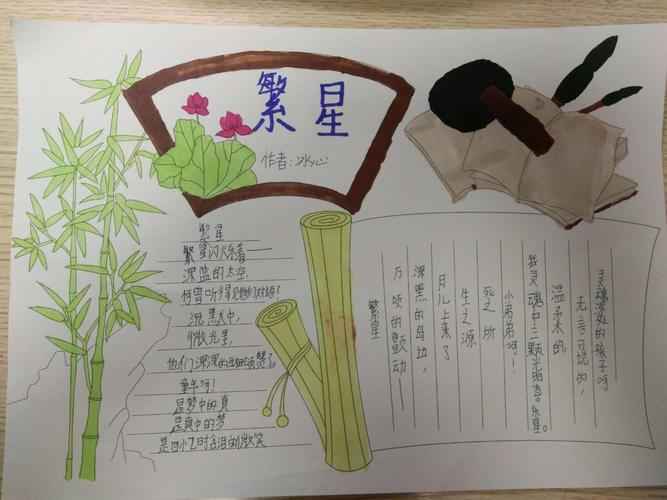 繁星
作者:冰心
繁星
繁星闪烁着
深蓝的太空,
何曾听得见他们对语?
沉默中,
微光里,
他们深深的互相颂赞了
童年呵!
是梦中的真
是真中的梦
是回忆时含泪的微笑
繁星
万顷的颤动——
深黑的岛边,
月儿上来了
生之源
死之所
小弟弟呵!
我灵魂中三颗光明喜乐星。
温柔的
无言可说的,
灵魂深处的孩子呵